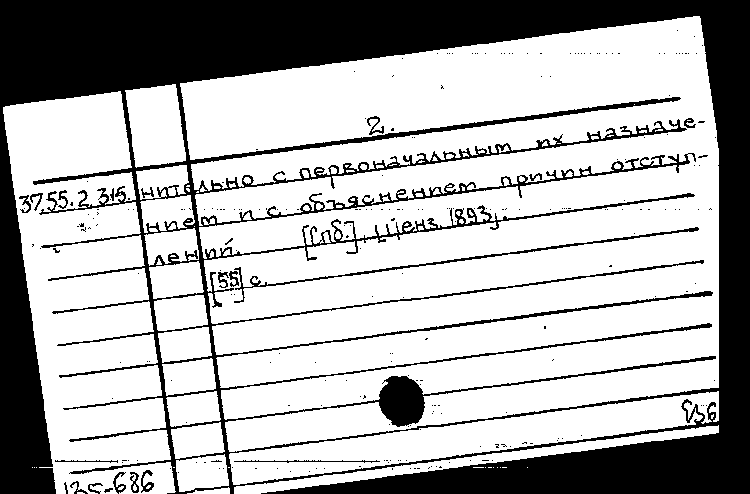 2.
37.55.2.315. нительно с первоначальным их назначе-
нием и с объяснением причин отступ-
лений. [Спб.], ценз. 1893.
[55] с.
135-686